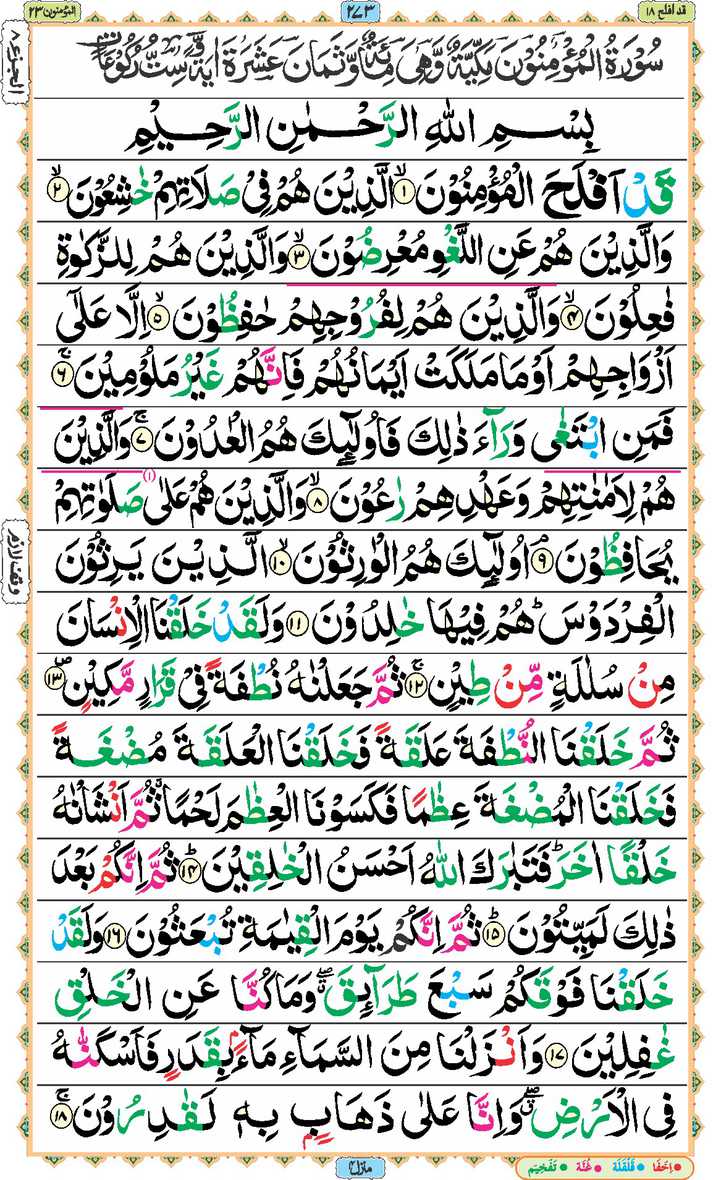 قد افلح ١٨
٢٧٣
المؤمنون ٢٣
سُوْرَةُ الْمُؤْمِنُوْنَ مَكِّيَّةٌ وَّهِىَ مِائَةٌ وَّثَمَانَ عَشَرَةَ اٰيَةً وَّ سِتُّ رُكُوْعَاتٍ
بِسْمِ اللهِ الرَّحْمٰنِ الرَّحِيْمِ
قَدْ اَفْلَحَ الْمُؤْمِنُوْنَ ۙ﴿١﴾ الَّذِيْنَ هُمْ فِىْ صَلَاتِهِمْ خٰشِعُوْنَ ۙ﴿٢﴾
وَالَّذِيْنَ هُمْ عَنِ اللَّغْوِ مُعْرِضُوْنَ ۙ﴿٣﴾ وَالَّذِيْنَ هُمْ لِلزَّكٰوةِ
فٰعِلُوْنَ ۙ﴿٤﴾ وَالَّذِيْنَ هُمْ لِفُرُوْجِهِمْ حٰفِظُوْنَ ۙ﴿٥﴾ اِلَّا عَلٰٓى
اَزْوَاجِهِمْ اَوْ مَا مَلَكَتْ اَيْمَانُهُمْ فَاِنَّهُمْ غَيْرُ مَلُوْمِيْنَ ۚ﴿٦﴾
فَمَنِ ابْتَغٰى وَرَآءَ ذٰلِكَ فَاُولٰٓئِكَ هُمُ الْعٰدُوْنَ ۚ﴿٧﴾ وَالَّذِيْنَ
هُمْ لِاَمٰنٰتِهِمْ وَعَهْدِهِمْ رٰعُوْنَ ۙ﴿٨﴾ وَالَّذِيْنَ هُمْ عَلٰى صَلَوٰتِهِمْ
يُحَافِظُوْنَ ۘ﴿٩﴾ اُولٰٓئِكَ هُمُ الْوٰرِثُوْنَ ۙ﴿١٠﴾ الَّذِيْنَ يَرِثُوْنَ
الْفِرْدَوْسَ ؕ هُمْ فِيْهَا خٰلِدُوْنَ ﴿١١﴾ وَلَقَدْ خَلَقْنَا الْاِنْسَانَ
مِنْ سُلٰلَةٍ مِّنْ طِيْنٍ ۚ﴿١٢﴾ ثُمَّ جَعَلْنٰهُ نُطْفَةً فِىْ قَرَارٍ مَّكِيْنٍ ۪﴿١٣﴾
ثُمَّ خَلَقْنَا النُّطْفَةَ عَلَقَةً فَخَلَقْنَا الْعَلَقَةَ مُضْغَةً
فَخَلَقْنَا الْمُضْغَةَ عِظٰمًا فَكَسَوْنَا الْعِظٰمَ لَحْمًا ۗ ثُمَّ اَنْشَاْنٰهُ
خَلْقًا اٰخَرَ ؕ فَتَبٰرَكَ اللّٰهُ اَحْسَنُ الْخٰلِقِيْنَ ؕ﴿١٤﴾ ثُمَّ اِنَّكُمْ بَعْدَ
ذٰلِكَ لَمَيِّتُوْنَ ؕ﴿١٥﴾ ثُمَّ اِنَّكُمْ يَوْمَ الْقِيٰمَةِ تُبْعَثُوْنَ ﴿١٦﴾ وَلَقَدْ
خَلَقْنَا فَوْقَكُمْ سَبْعَ طَرَآئِقَ ۖ وَمَا كُنَّا عَنِ الْخَلْقِ
غٰفِلِيْنَ ﴿١٧﴾ وَاَنْزَلْنَا مِنَ السَّمَآءِ مَآءًۢ بِقَدَرٍ فَاَسْكَنّٰهُ
فِى الْاَرْضِ ۖ وَاِنَّا عَلٰى ذَهَابٍۢ بِهٖ لَقٰدِرُوْنَ ۚ﴿١٨﴾
الجزء ١٨
وقف لازم
منزل ٤
اِخفَا
قَلْقَلَة
غُنَّة
تَفْخِيْم